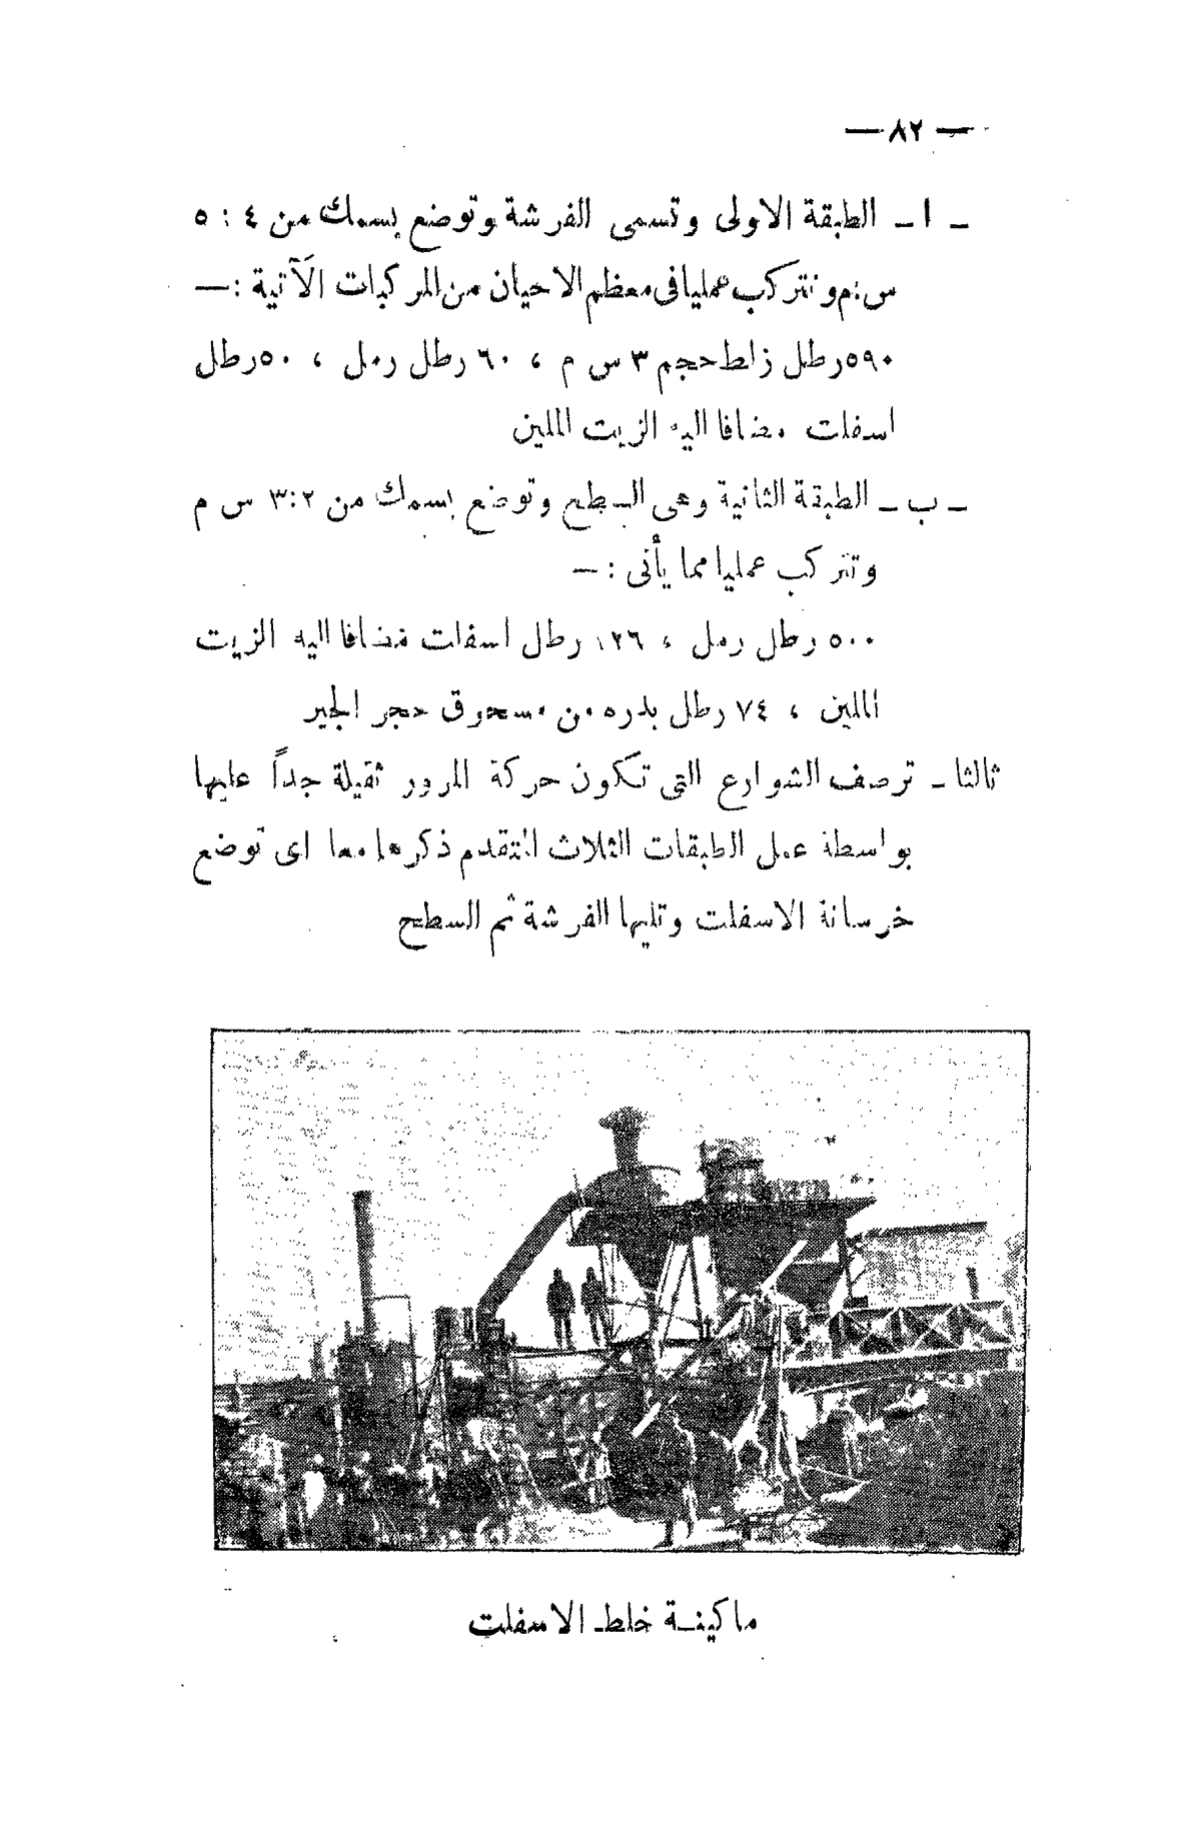 — ٨٢ —
ـ ا ـ الطبقة الاولى وتسمى الفرشة وتوضع بسمك من ٤ : ٥
س.م وتتركب عمليا فى معظم الاحيان من المركبات الآتية :—
٥٩٠ رطل زلط حجم ٣ س م ، ٦٠ رطل رمل ، ٥٠ رطل
اسفلت مضافا اليه الزيت الملين
ـ ب ـ الطبقة الثانية وهى السطح وتوضع بسمك من ٣:٢ س م
وتتركب عمليا مما يأتى :—
٥٠٠ رطل رمل ، ١٢٦ رطل اسفلت مضافا اليه الزيت
الملين ، ٧٤ رطل بدره من مسحوق حجر الجير
ثالثا ـ ترصف الشوارع التى تكون حركة المرور ثقيلة جداً عليها
بواسطة عمل الطبقات الثلاث المتقدم ذكرها معا اى توضع
خرسانة الاسفلت وتليها الفرشة ثم السطح
ماكينة خلط الاسفلت